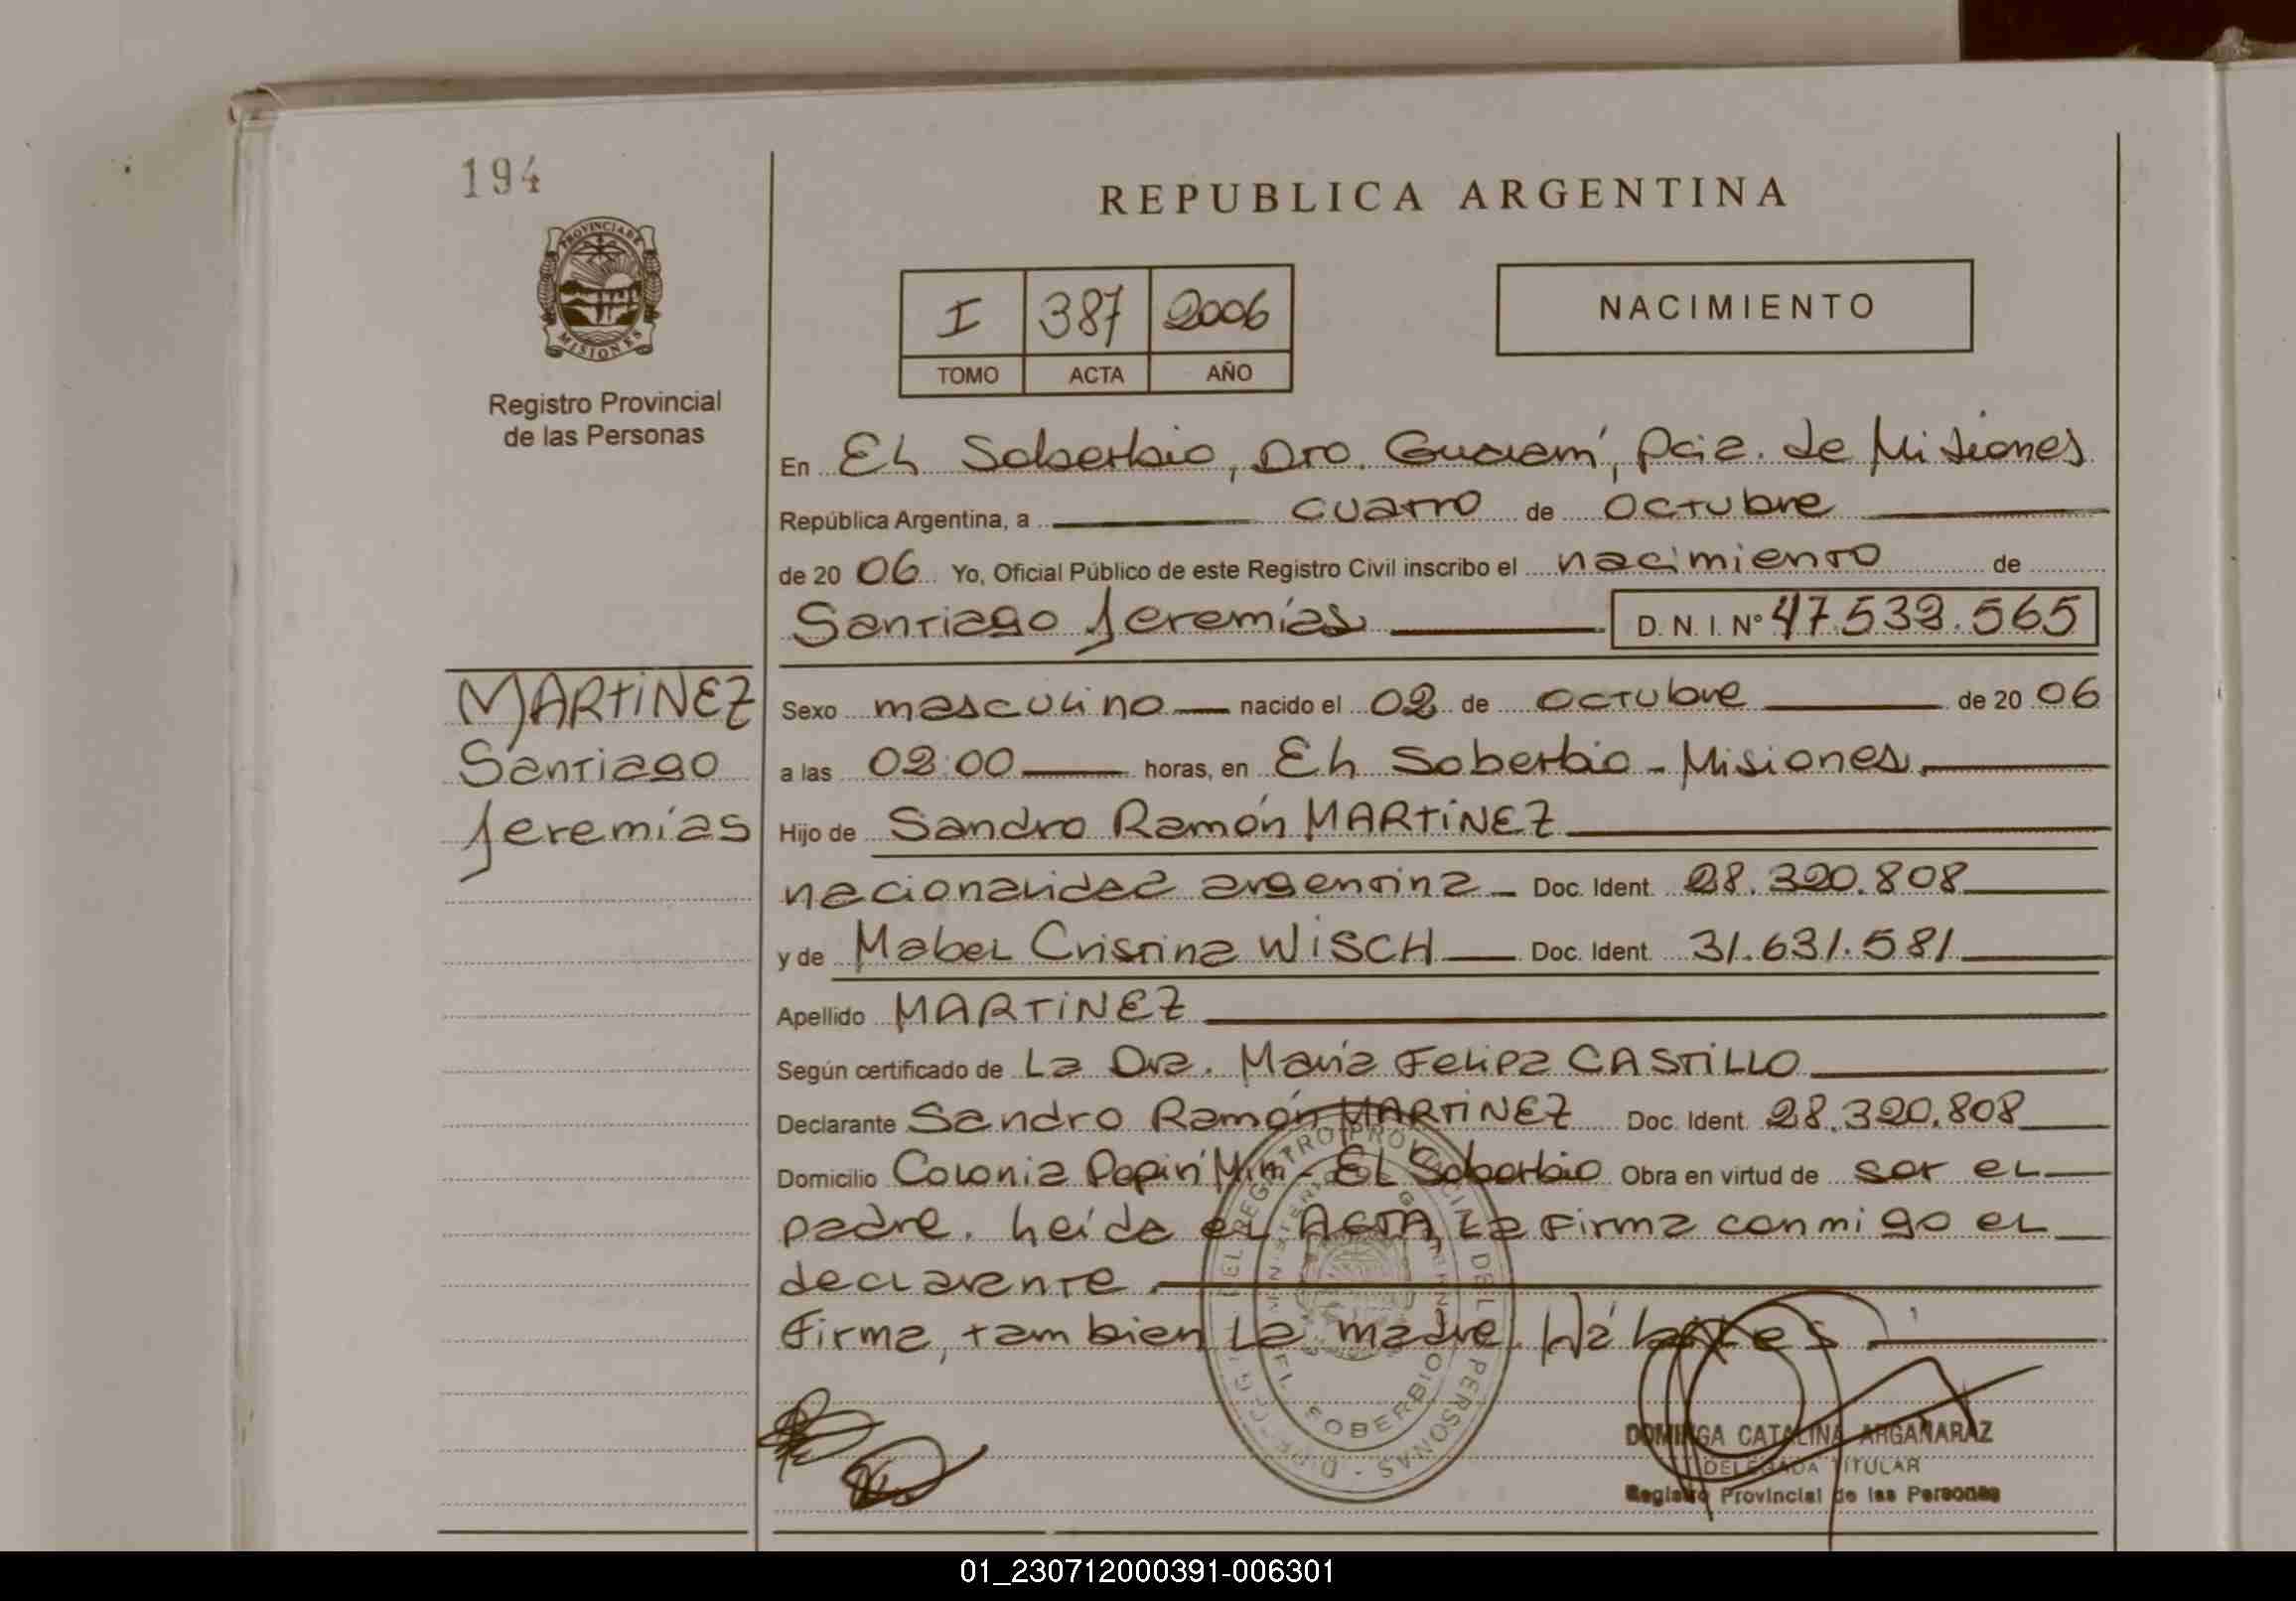 194
REPUBLICA ARGENTINA
PROVINCIA DE
MISIONES
Registro Provincial
de las Personas
I 387 2006
TOMO ACTA AÑO
NACIMIENTO
En El Soberbio, Dto. Guaraní, Pcia. de Misiones
República Argentina, a cuatro de octubre
de 20 06 Yo, Oficial Público de este Registro Civil inscribo el nacimiento de
Santiago Jeremías D.N.I. Nº 47.532.565
MARTINEZ
Santiago
Jeremías
Sexo masculino nacido el 02 de octubre de 20 06
a las 02:00 horas, en El Soberbio - Misiones
Hijo de Sandro Ramón MARTINEZ
nacionalidad argentina - Doc. Ident. 28.320.808
y de Mabel Cristina WISCH Doc. Ident. 31.631.581
Apellido MARTINEZ
Según certificado de La Dra. María Felipa CASTILLO
Declarante Sandro Ramón MARTINEZ Doc. Ident. 28.320.808
Domicilio Colonia Pepirí Miní - El Soberbio Obra en virtud de ser el
padre. Leída el ACTA, la firma conmigo el
declarante.
Firma, tambien la madre.
EL SOBERBIO
DOMINGA CATALINA ARGAÑARAZ
DELEGADA TITULAR
Registro Provincial de las Personas
01_230712000391-006301